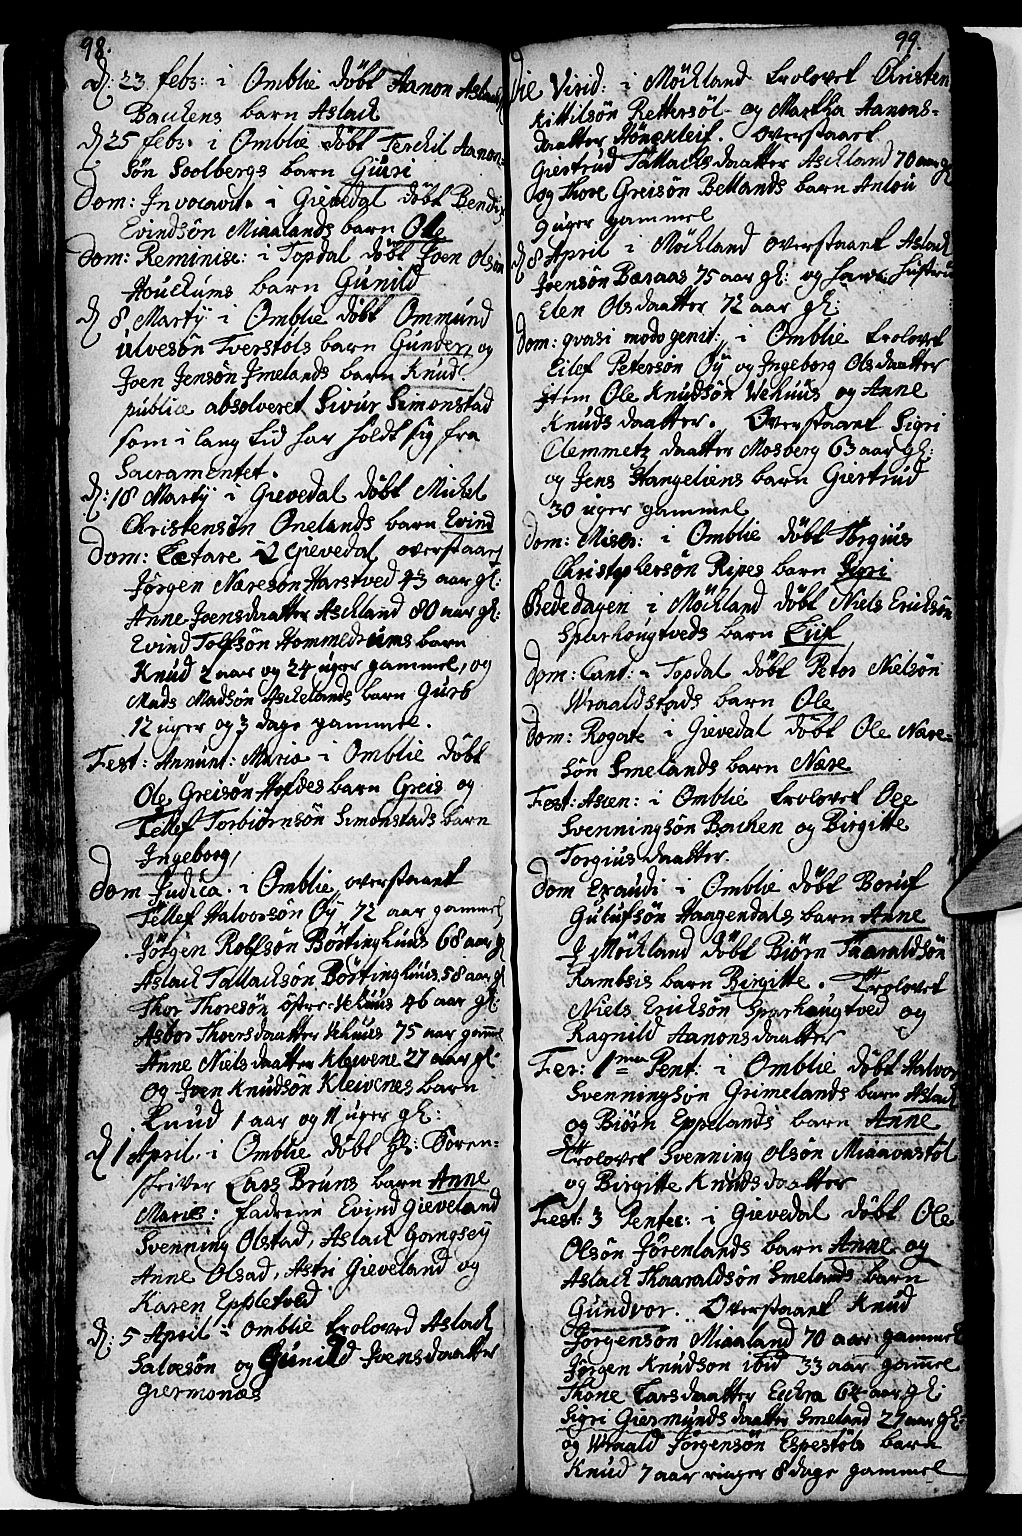 98.
d: 23 febr: i Omblie döbt Aanon Aslack
Backens barn Aslack
d 25 febr. i Omblie döbt Terckil Aanon-
sön Soolbergs barn Guri
Dom: Invocavit. i Gievedal döbt Bendix
Evindsön Miaalands barn Ole
Dom: Reminisc: i Topdal döbt Joen Olsön
Houckums barn Gunild
d 8 Martÿ i Omblie döbt Ommund
Ulvesön Tverstöls barn Gunder, og
Joen Jensön Jmelands barn Knud.
publice absolveret Sivur Simonstad
som i lang tid har holdt sig fra
Sacramentet.
d: 18 Martÿ i Gievedal döbt Michel
Christensön Onelands barn Evind
Dom: Lætare i Gievedal overstaaet
Jörgen Næresön Harstved 43 aar gl:
Anne Joensdaatter Aschland 80 aar gl:
Evind Tolfsön Hommedrums barn
Knud 2 aar og 24 uger gammel, og
Mads Madsön Aschelands barn Gurb
12 uger og 3 dage gammel.
Fest: Annunt: Mariæ i Omblie döbt
Ole Greisön Hofdes barn Greis og
Tellef Torbiörnsön Simonstads barn
Ingeborg,
Dom Judica. i Omblie overstaaet
Tellef Halvorsön Oÿ 72 aar gammel
Jörgen Rolfsön Börtinghuus 68 aar gl
Aslack Tallacksön Börtinghuus 58 aar gl
Thor Thoresön öfre-Vehuus 46 aar gl:
Asbor Thorsdaatter Vehuus 75 aar gamel
Anne Nielsdaatter Klewene 27 aar gl:
og Joen Knudsön Klewenes barn
Knud 1 aar og 11 uger gl:
d 1 April. i Omblie döbt Hr: Soren-
skriver Lars Bruns barn Anne
Marie: fadrene Evind Gieveland
Svenning Olstad, Aslack Gangseÿ
Anne Olsad, Astri Gieveland og
Karen Eppletvold
d: 5 April i Omblie troloved Aslack
Salvesön og Gunild Joensdaatter
Giermonæs
99.
die Virid: i Möckland trolovet Christen
Kittilsön Rettersöl- og Martha Aanons-
daatter Hönekleif. Overstaaet
Giertrud Tallachsdaatter Aschland 70 aar gl
og Thore Greisön Betlands barn Anlou
9 uger gammel
d 8 April i Möckland overstaaet Aslack
Joensön Baasaas 75 aar gl: og hans hustru
Elen Olsdaatter 72 aar gl:
Dom: qvasi modo genit: i Omblie trolovet
Eilef Petersön Oÿ og Ingeborg Olsdaatter
Item Ole Knudsön Wehuus og Anne
Knudsdaatter. Overstaaet Sigri
Clemmetz daatter Mosberg 63 aar gl:
og Jens Stangeliens barn Giertrud
30 uger gammel
Dom: Miser: i Omblie döbt Torgius
Christophersön Ripes barn Sigri
Bededagen i Möckland döbt Niels Ericksön
Sparhougtveds barn Luf
Dom: Cant: i Topdal döbt Peter Nielsön
Wraaldstads barn Ole
Dom: Rogate i Gievedal döbt Ole Nære-
sön Smelands barn Nære
Fest: Ascen: i Omblie trolovet Ole
Svenningsön Bachen og Birgitte
Torgiusdaatter.
Dom Exaudi i Omblie döbt Boruf
Gulufsön Haagendals barn Anne
I Möckland döbt Biörn Thaaraldsön
Ramsis barn Birgitte. Trolovet
Niels Ericksön Sparhougtved og
Ragnild Aanonsdaatter
Fer: 1ma Pent: i Omblie döbt Halvor
Svenningsön Grimelands barn Aslack
og Biörn Eppelands barn Anne
Trolovet Svenning Olsön Miaavastöl
og Birgitte Knudsdaatter
Fest: 3 Pentec: i Gievedal döbt Ole
Olsön Jörenlands barn Anne og
Aslack Thaaraldsön Smelands barn
Gundvor. Overstaaet Knud
Jörgensön Miaaland 70 aar gammel
Jörgen Knudsön ibid 33 aar gamel
Thone Larsdaatter Eckra 64 aar gl:
Sigri Giermundsdaatter Smeland 27 aar gl:
og Wraald Jörgensön Espestöls barn
Knud 7 aar ringer 8 dage gammel